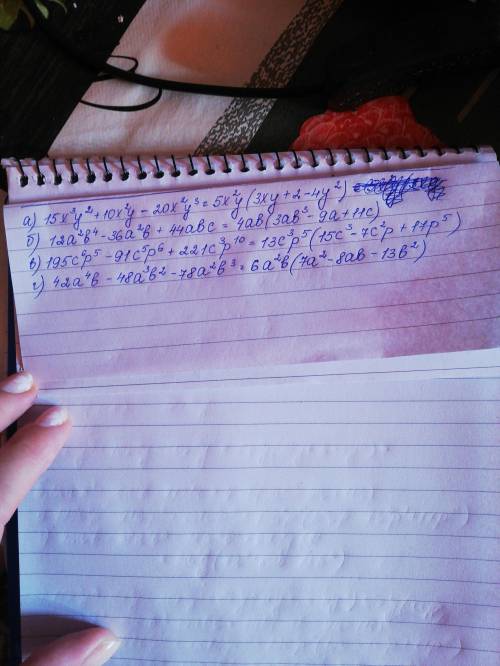 а) 15x³y²+10x²y-20x²y³=5x²y(3xy+2-4y²)
б) 12a²b⁴-36a²b+44abc=4ab(3ab³-9a+11c)
в) 195c⁶p⁵-91c⁵p⁶+221c³p¹⁰=13c³p⁵(15c³-7c²p+17p⁵)
г) 42a⁴b-48a³b²-78a²b³=6a²b(7a²-8ab-13b²)